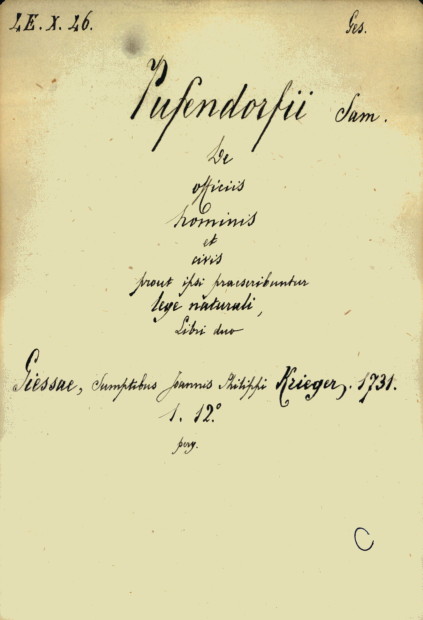 LE. X. 26. Ges.
Pufendorfii Sam.
De
officiis
hominis
et
civis
prout ipsi praescribuntur
lege naturali,
Libri duo
Giessae, Sumptibus Joannis Philippi Krieger, 1731.
1. 12°
perg.
C